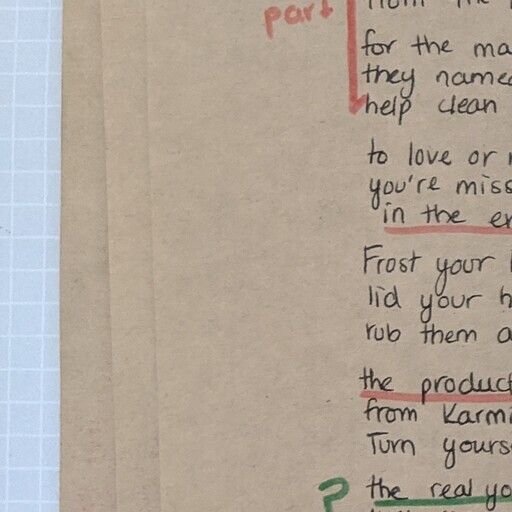 part
for the ma
they named
help clean
to love or
you're miss
in the en
Frost your
lid your h
rub them a
the product
from Karmi
Turn yours
? the real yo